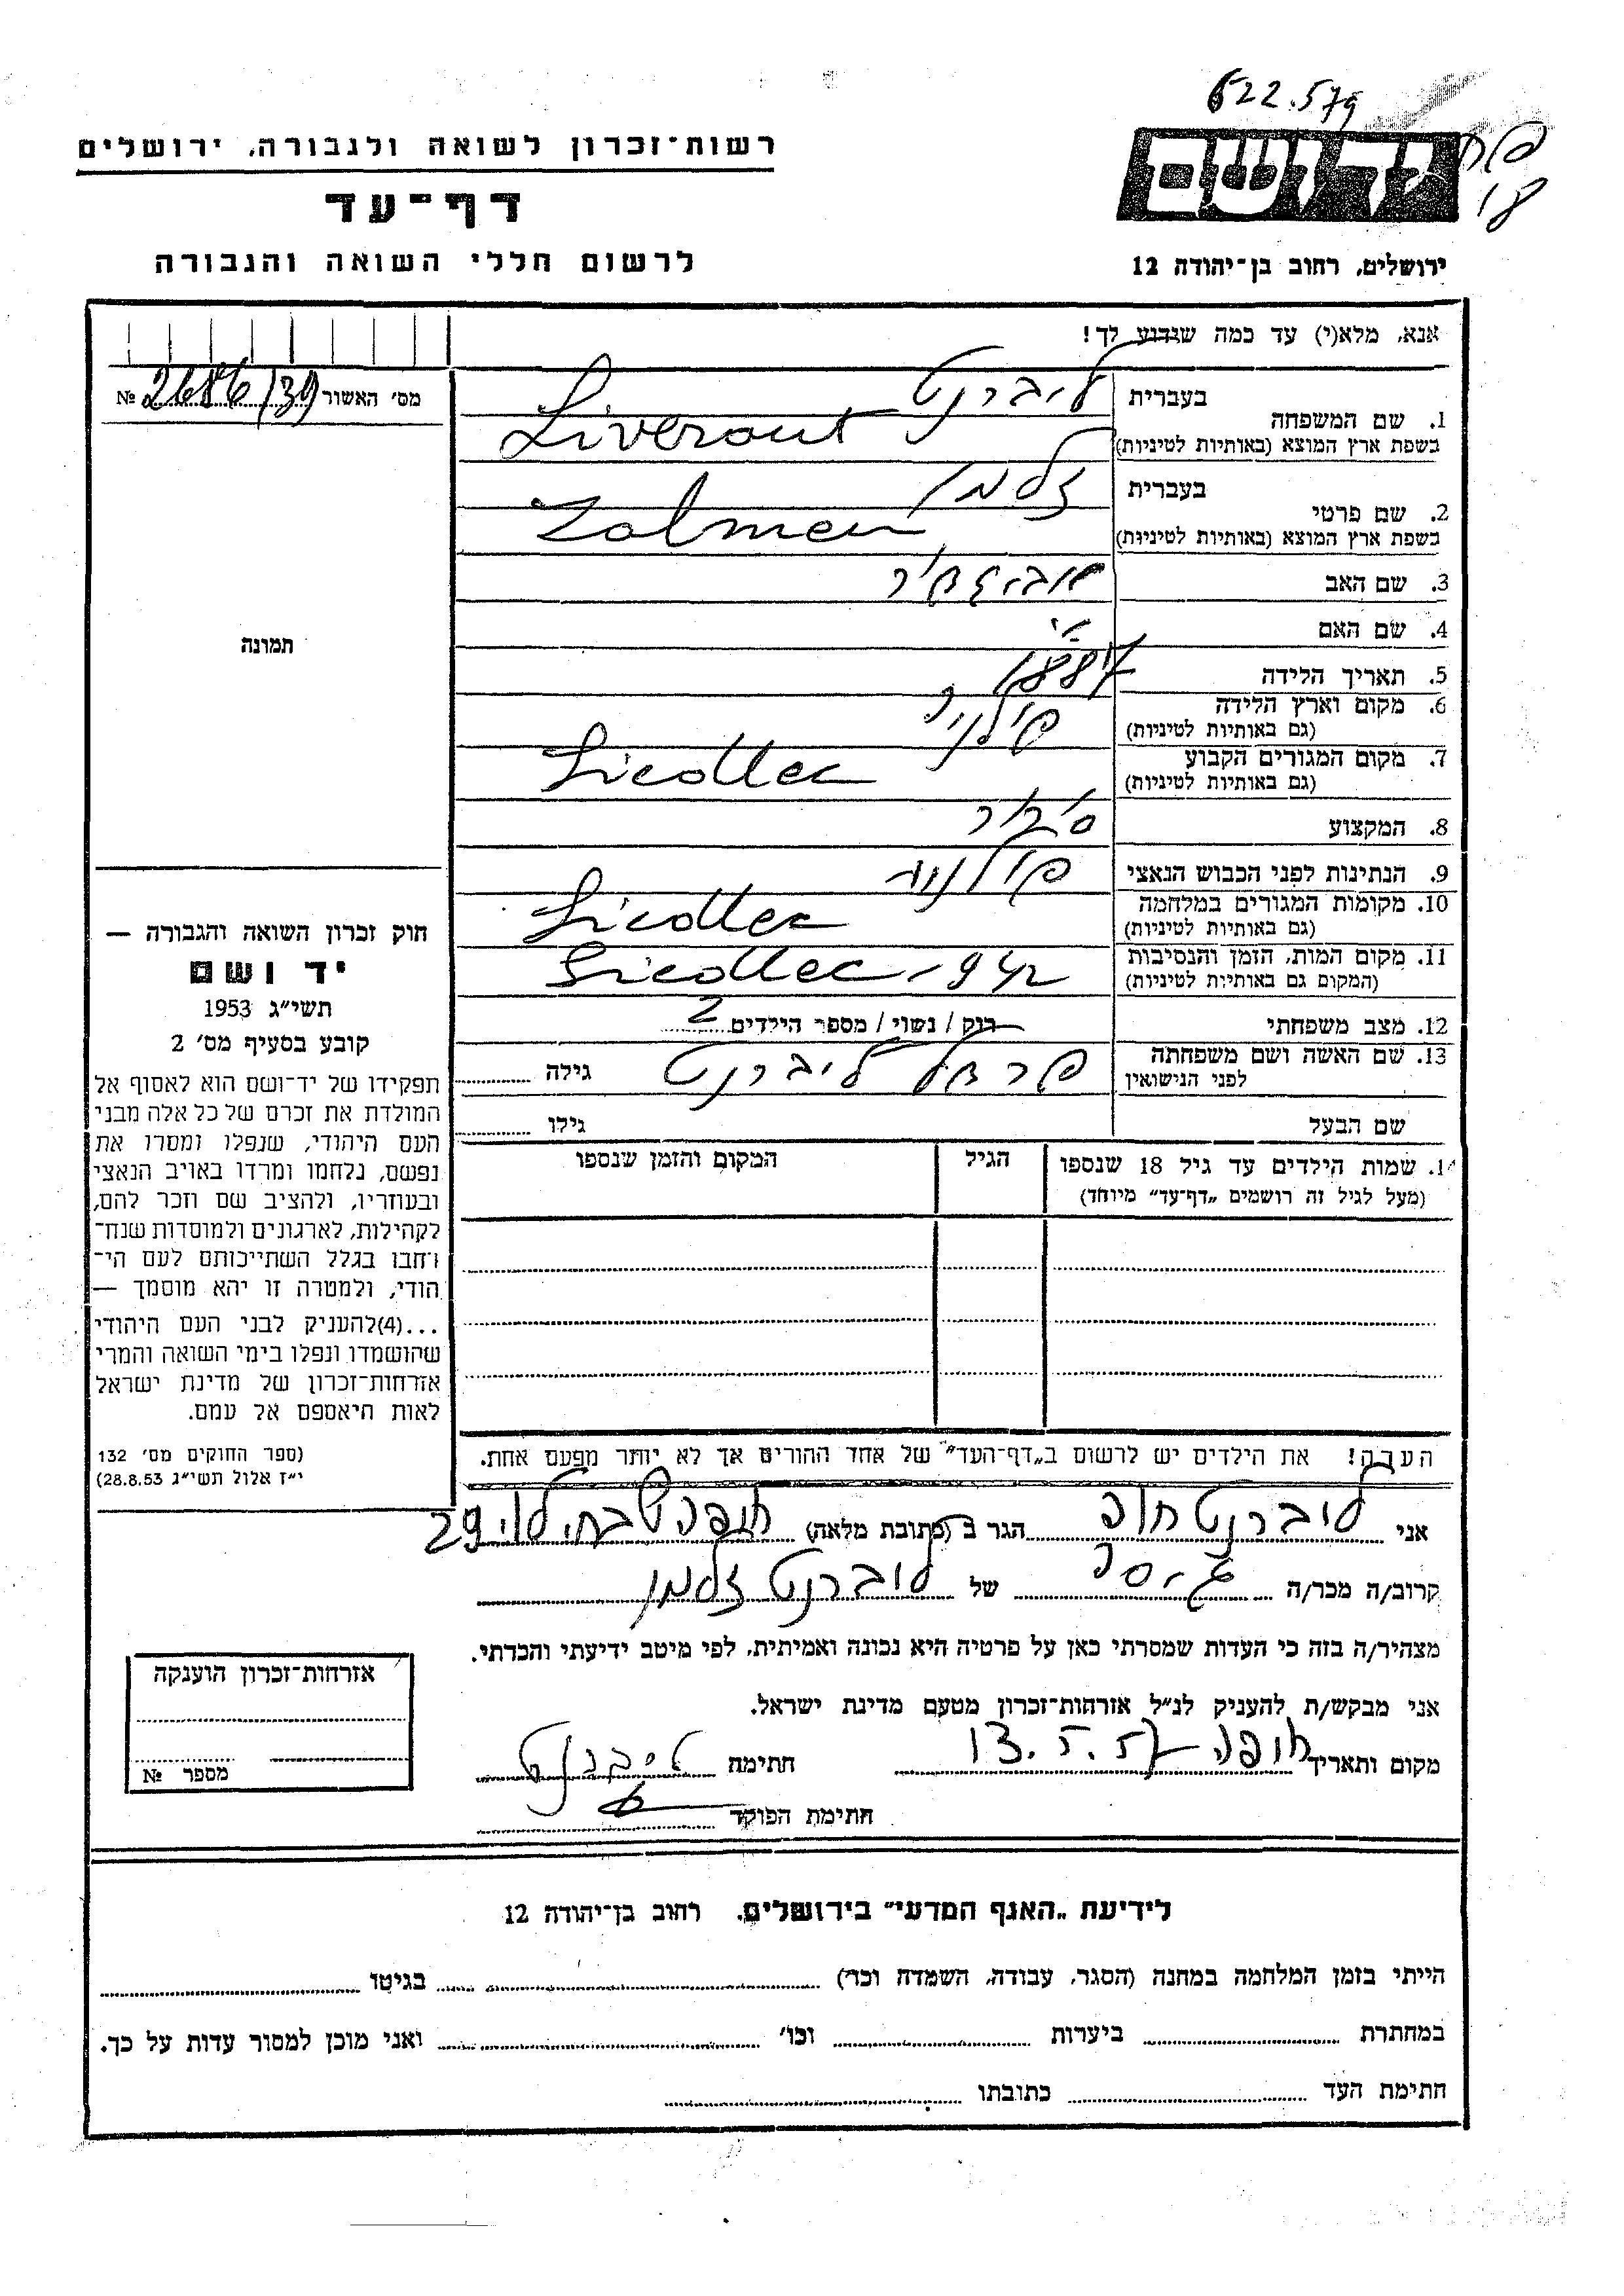 622.579
רשות־זכרון לשואה ולגבורה, ירושלים
יד ושם
דף־עד
לרשום חללי השואה והגבורה
ירושלים, רחוב בן־יהודה 12
אנא, מלא(י) עד כמה שידוע לך!
מס׳ האשור № 2686/39
1. שם המשפחה
בעברית ליברנט
בשפת ארץ המוצא (באותיות לטיניות) Liverant
2. שם פרטי
בעברית זלמן
בשפת ארץ המוצא (באותיות לטיניות) Zalmen
3. שם האב
4. שם האם
5. תאריך הלידה 1887
6. מקום וארץ הלידה
(גם באותיות לטיניות)
7. מקום המגורים הקבוע
(גם באותיות לטיניות) Siedlec
8. המקצוע
9. הנתינות לפני הכבוש הנאצי
10. מקומות המגורים במלחמה
(גם באותיות לטיניות) Siedlec
11. מקום המות, הזמן והנסיבות
(המקום גם באותיות לטיניות) Siedlec - 942
12. מצב משפחתי רוק / נשוי / מספר הילדים 2
13. שם האשה ושם משפחתה
לפני הנישואין ליברנט גילה
שם הבעל גילו
14. שמות הילדים עד גיל 18 שנספו הגיל המקום והזמן שנספו
(מעל לגיל זה רושמים „דף־עד״ מיוחד)
הערה! את הילדים יש לרשום ב„דף־העד״ של אחד ההורים אך לא יותר מפעם אחת.
תמונה
חוק זכרון השואה והגבורה —
יד ושם
תשי״ג 1953
קובע בסעיף מס׳ 2
תפקידו של יד־ושם הוא לאסוף אל
המולדת את זכרם של כל אלה מבני
העם היהודי, שנפלו ומסרו את
נפשם, נלחמו ומרדו באויב הנאצי
ובעוזריו, ולהציב שם וזכר להם,
לקהילות, לארגונים ולמוסדות שנח־
רבו בגלל השתייכותם לעם הי־
הודי, ולמטרה זו יהא מוסמך —
...(4)להעניק לבני העם היהודי
שהושמדו ונפלו בימי השואה והמרי
אזרחות־זכרון של מדינת ישראל
לאות היאספם אל עמם.
(ספר החוקים מס׳ 132
י״ז אלול תשי״ג 28.8.53)
אני ליברנט הגר ב (כתובת מלאה) 29
קרוב/ה מכר/ה גיסי של ליברנט זלמן
מצהיר/ה בזה כי העדות שמסרתי כאן על פרטיה היא נכונה ואמיתית, לפי מיטב ידיעתי והכרתי.
אני מבקש/ת להעניק לנ״ל אזרחות־זכרון מטעם מדינת ישראל.
מקום ותאריך חיפה 13.5.57 חתימה ליברנט
חתימת הפוקד
אזרחות־זכרון הוענקה
מספר №
לידיעת „האגף המדעי״ בירושלים, רחוב בן־יהודה 12
הייתי בזמן המלחמה במחנה (הסגר, עבודה, השמדה וכו׳) בגיטו
במחתרת ביערות וכו׳ ואני מוכן למסור עדות על כך.
חתימת העד כתובתו